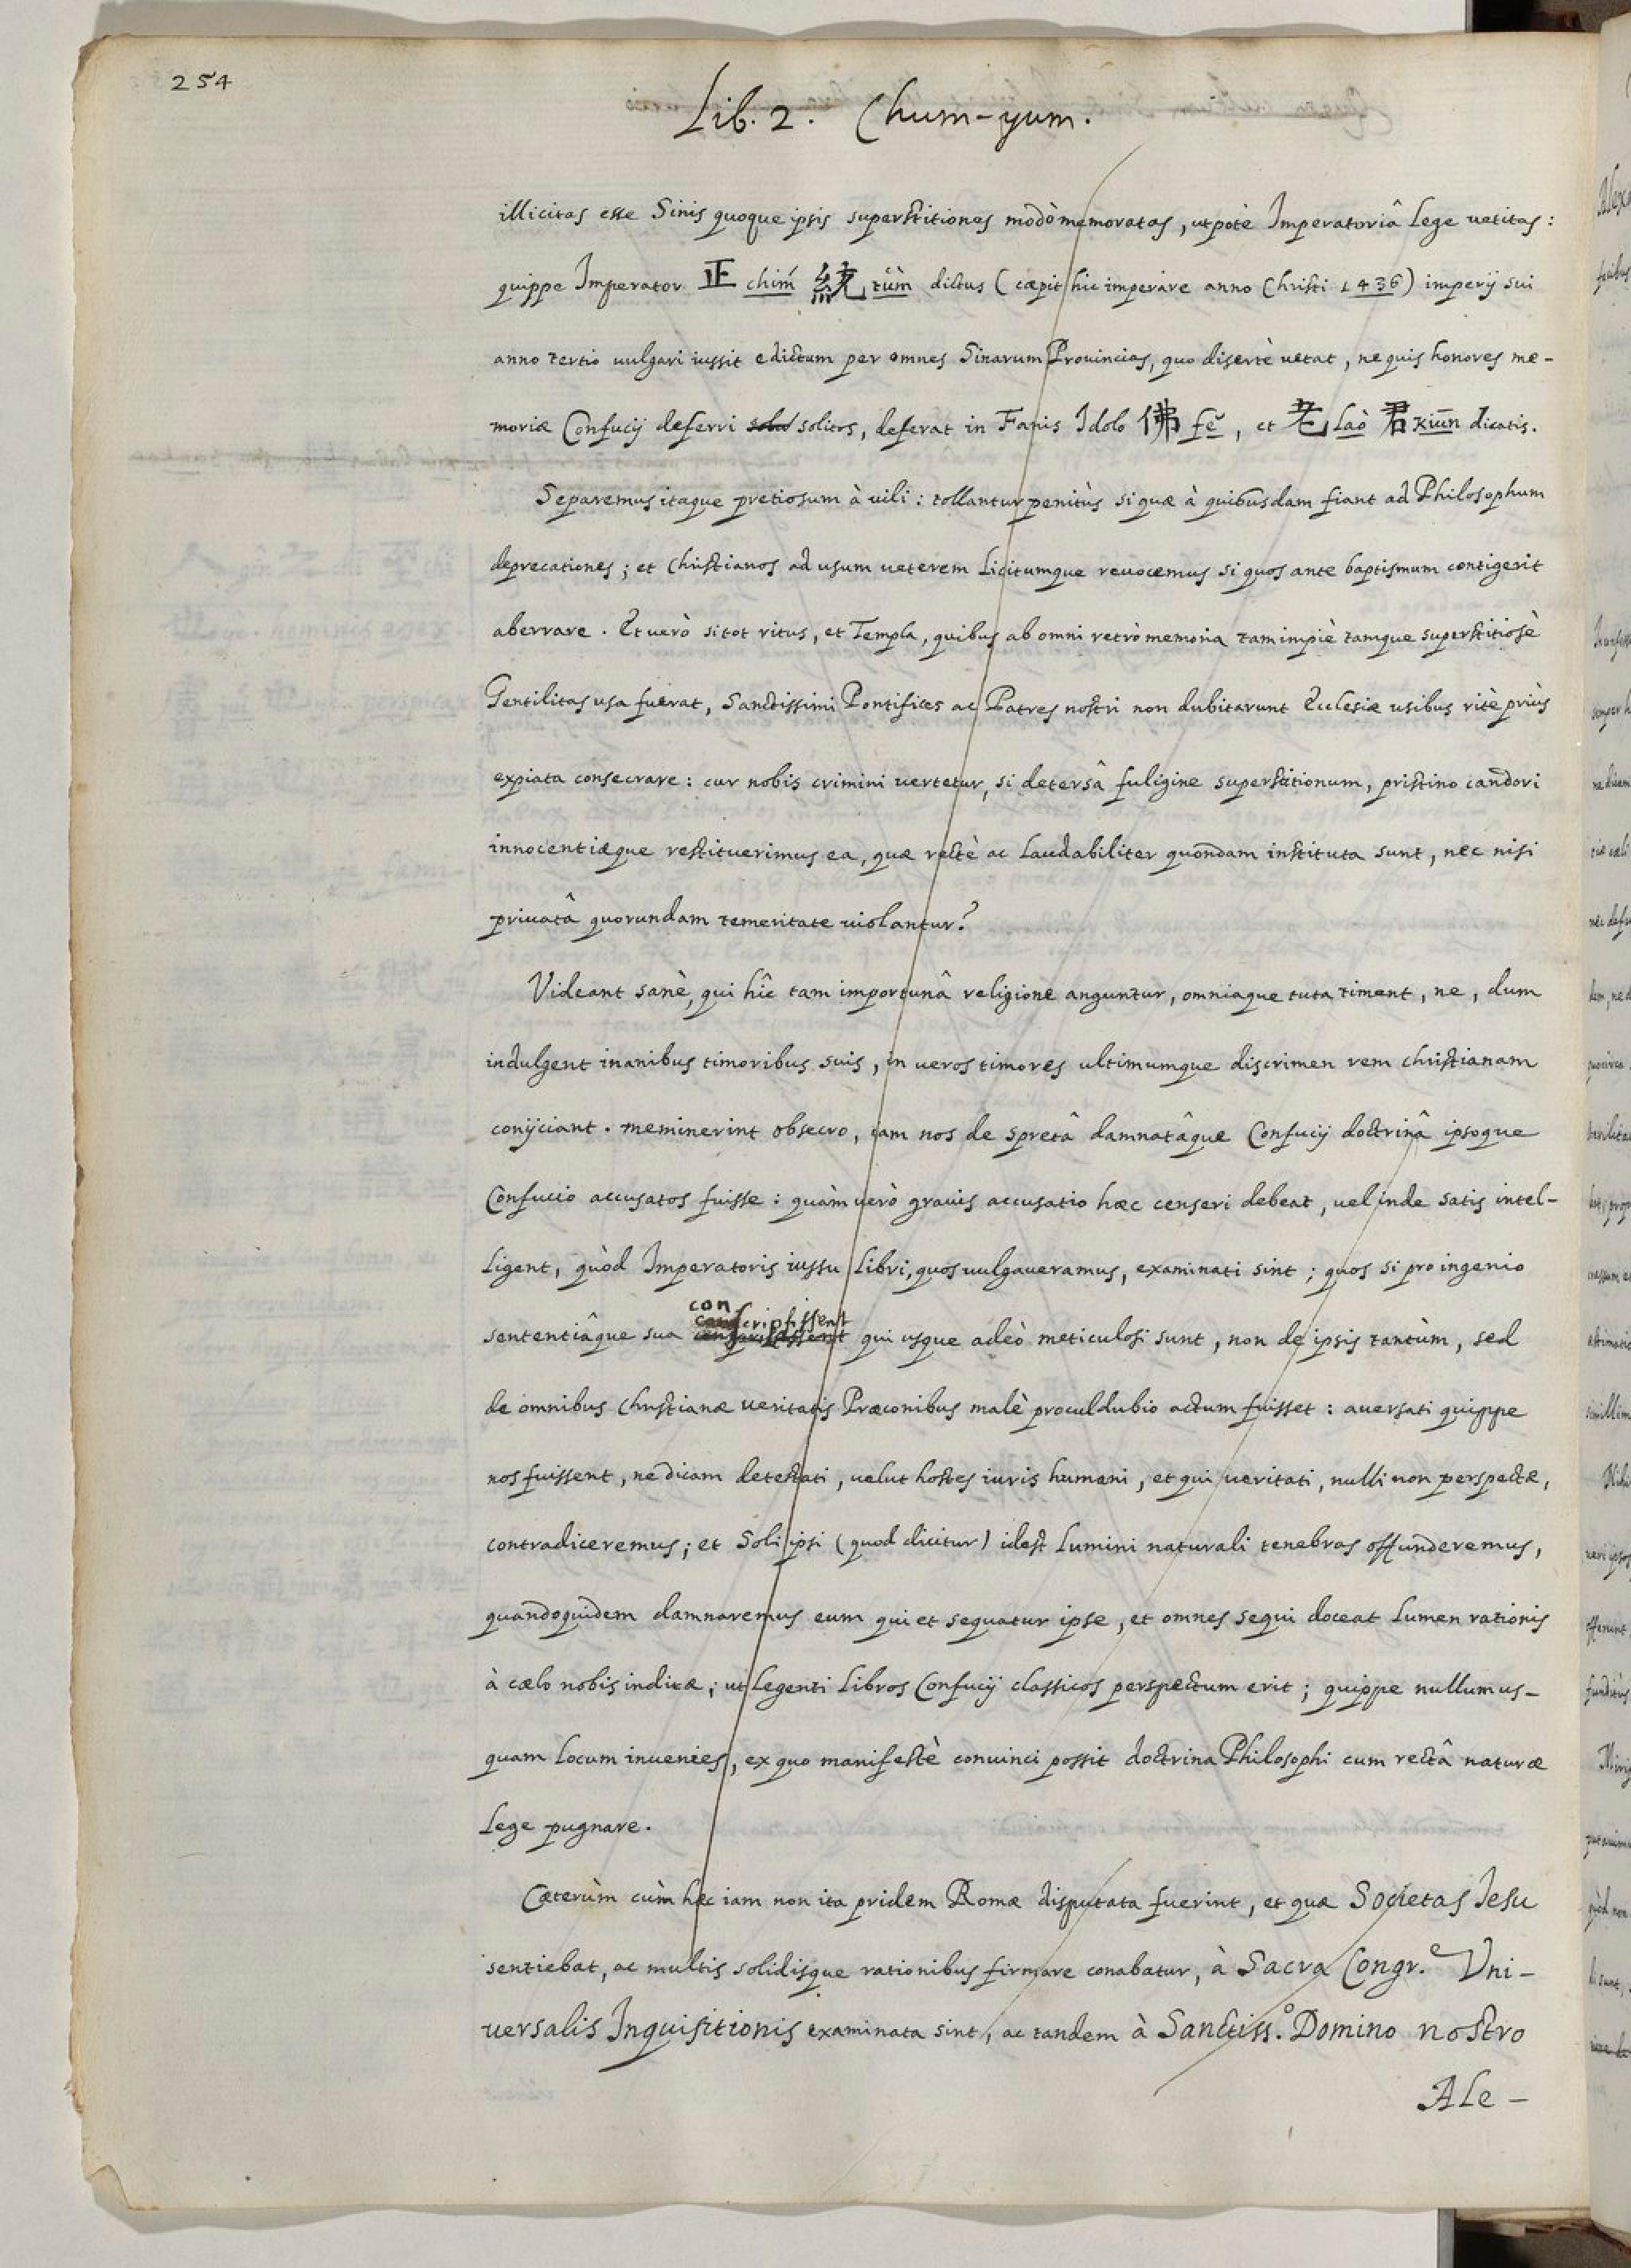 254
Lib. 2. Chum-yum.
illicitas esse Sinis quoque ipsis superstitiones modò memoratas, utpotè Imperatoriâ Lege vetitas:
quippe Imperator 正 chím 統 tùm dictus (cœpit hic imperare anno Christi 1436) imperij sui
anno tertio vulgari iussit edictum per omnes Sinarum Provincias, quo disertè vetat, ne quis honores me-
moriæ Confucij deferri solitos, deferat in Fanis Idolo 佛 fĕ, et 老 Laò 君 kiūn dicatis.
Separemus itaque pretiosum à vili: tollantur penitùs si quæ à quibusdam fiant ad Philosophum
deprecationes; et Christianos ad usum veterem Licitumque revocemus si quos ante baptismum contigerit
aberrare. Et verò si tot ritus, et Templa, quibus ab omni retrò memoria tam impiè tamque superstitiosè
Gentilitas usa fuerat, Sanctissimi Pontifices ac Patres nostri non dubitarunt Ecclesiæ usibus ritè priùs
expiata consecrare: cur nobis crimini vertetur, si detersâ fuligine superstitionum, pristino candori
innocentiæque restituerimus ea, quæ rectè ac Laudabiliter quondam instituta sunt, nec nisi
privatâ quorundam temeritate violantur?
Videant sanè, qui hîc tam importunâ religione anguntur, omniaque tuta timent, ne, dum
indulgent inanibus timoribus suis, in veros timores ultimumque discrimen rem christianam
conijciant. meminerint obsecro, iam nos de spretâ damnatâque Confucij doctrinâ ipsoque
Confucio accusatos fuisse: quàm verò gravis accusatio hæc censeri debeat, vel inde satis intel-
Ligent, quòd Imperatoris iussu Libri, quos vulgaveramus, examinati sint; quos si pro ingenio
sententiâque sua conscripsissent qui usque adeò meticulosi sunt, non de ipsis tantùm, sed
de omnibus Christianæ veritatis Præconibus malè proculdubio actum fuisset: aversati quippe
nos fuissent, ne dicam detestati, velut hostes iuris humani, et qui veritati, nulli non perspectæ,
contradiceremus; et Soli ipsi (quod dicitur) idest Lumini naturali tenebras offunderemus,
quandoquidem damnaremus eum qui et sequatur ipse, et omnes sequi doceat Lumen rationis
à cælo nobis inditæ; ut Legenti Libros Confucij classicos perspectum erit; quippe nullum us-
quam Locum invenies, ex quo manifestè convinci possit doctrina Philosophi cum rectâ naturæ
Lege pugnare.
Cæterùm cùm hæc iam non ita pridem Romæ disputata fuerint, et quæ Societas Jesu
sentiebat, ac multis solidisque rationibus firmare conabatur, à Sacra Congr.e Vni-
versalis Inquisitionis examinata sint, ac tandem à Sanctiss.o Domino nostro
Ale-